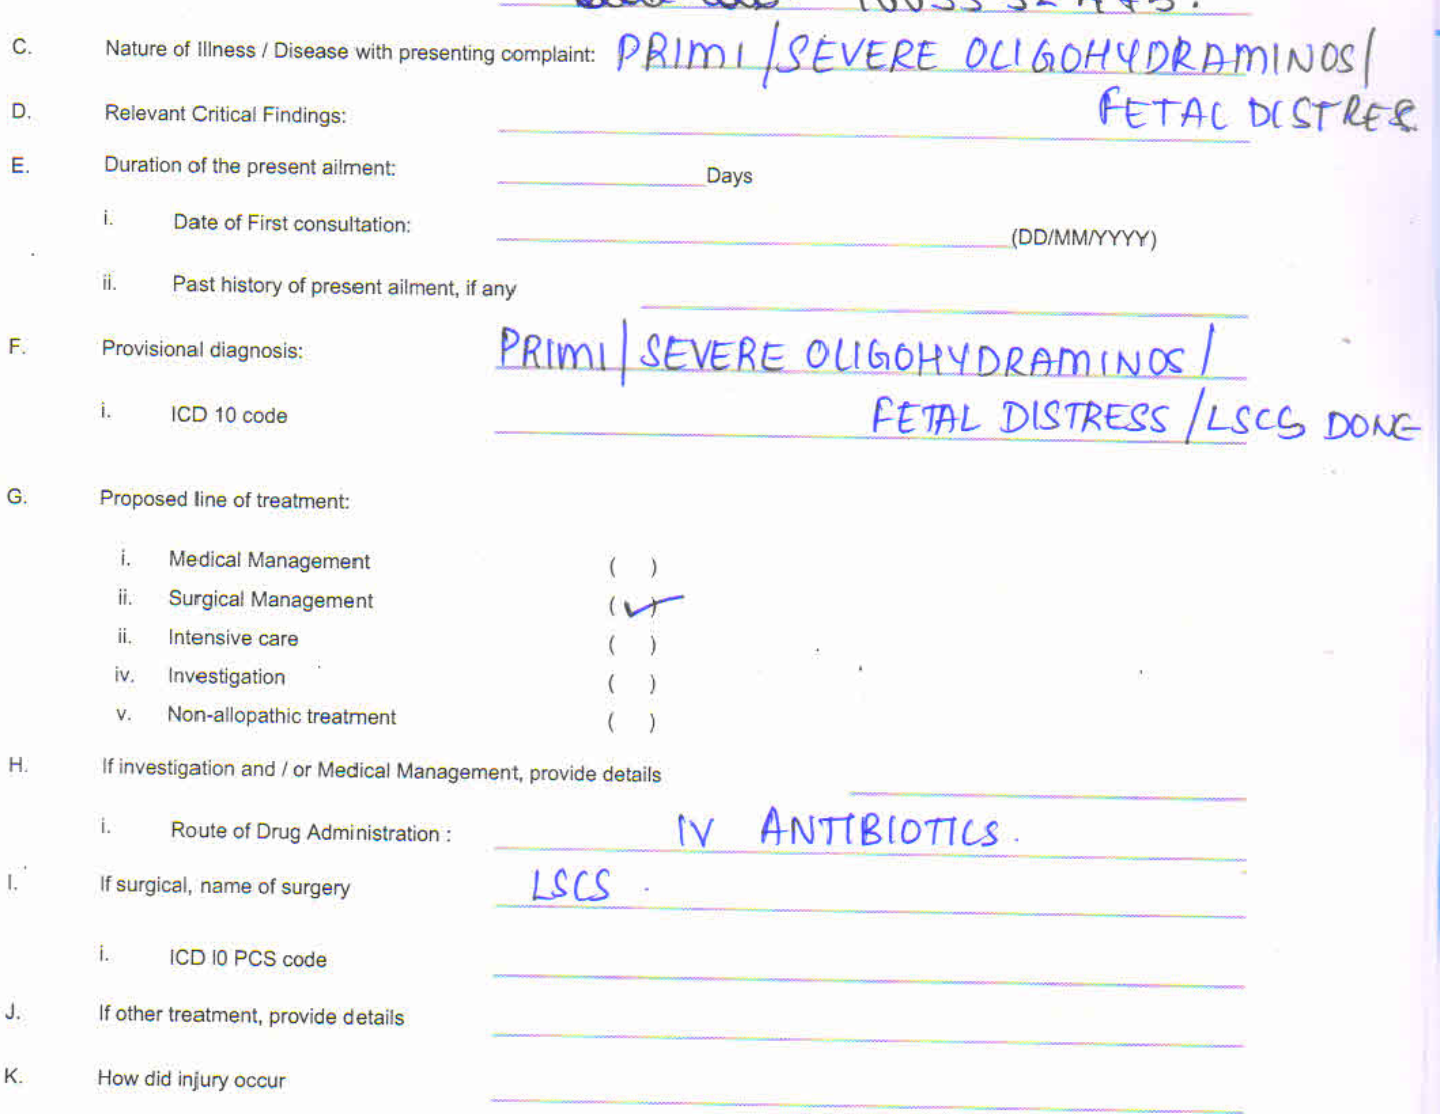 C. Nature of Illness / Disease with presenting complaint: PRIMI/SEVERE OLIGOHYDRAMINOS/
FETAL DISTRES
D. Relevant Critical Findings:
E. Duration of the present ailment: Days
i. Date of First consultation: (DD/MM/YYYY)
ii. Past history of present ailment, if any
F. Provisional diagnosis: PRIMI/SEVERE OLIGOHYDRAMINOS/
i. ICD 10 code FETAL DISTRESS/LSCS DONE
G. Proposed line of treatment:
i. Medical Management ( )
ii. Surgical Management (✓)
ii. Intensive care ( )
iv. Investigation ( )
v. Non-allopathic treatment ( )
H. If investigation and / or Medical Management, provide details
i. Route of Drug Administration : IV ANTIBIOTICS.
I. If surgical, name of surgery LSCS.
i. ICD I0 PCS code
J. If other treatment, provide details
K. How did injury occur